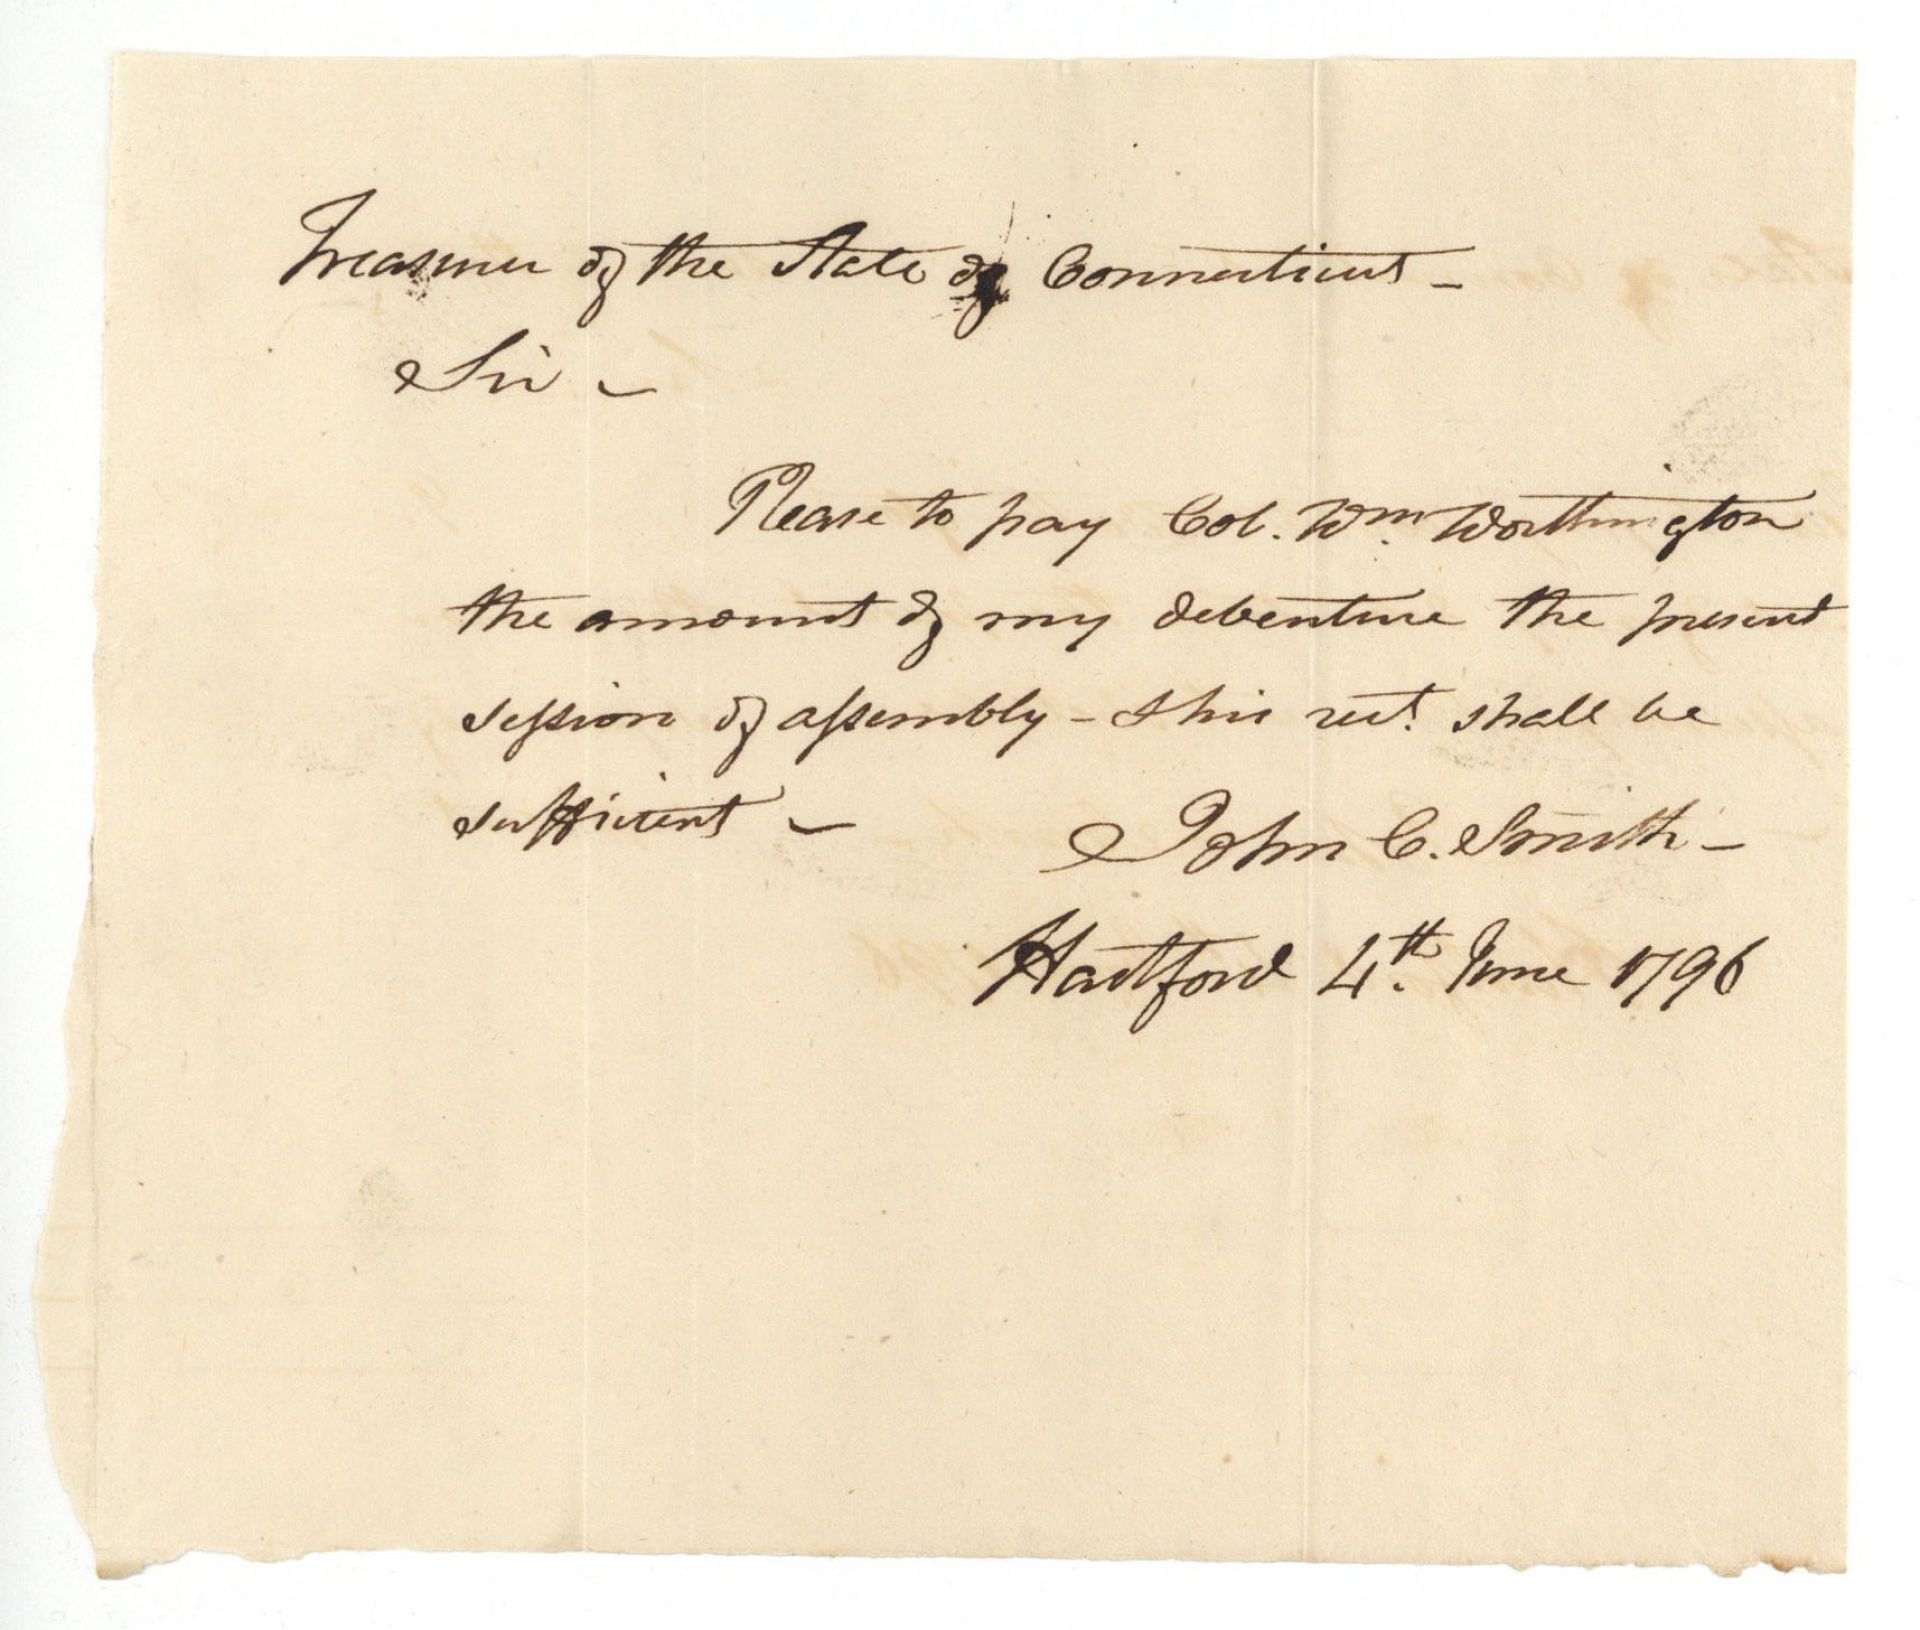 Treasurer of the State of Connecticut -
Sir -
Please to pay Col. Wm. Worthington
the amount of my debenture the present
session of assembly - this rect. shall be
sufficient -
John C. Smith -
Hartford 4th. June 1796